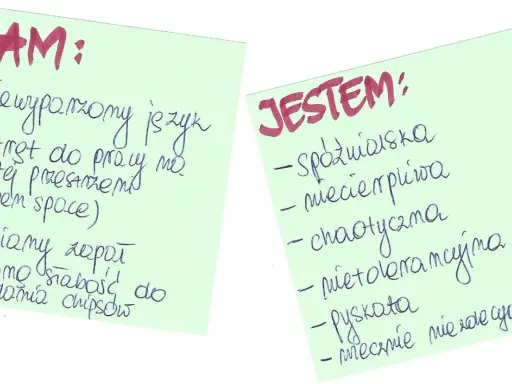 AM:
ewyparzony język
ręt do pracy na
tej przestrzeni
en space)
iany zapał
ną słabość do
dania chipsów
JESTEM:
- spóźnialska
- niecierpliwa
- chaotyczna
- nietolerancyjna
- pyskata
- wiecznie niezdecyd